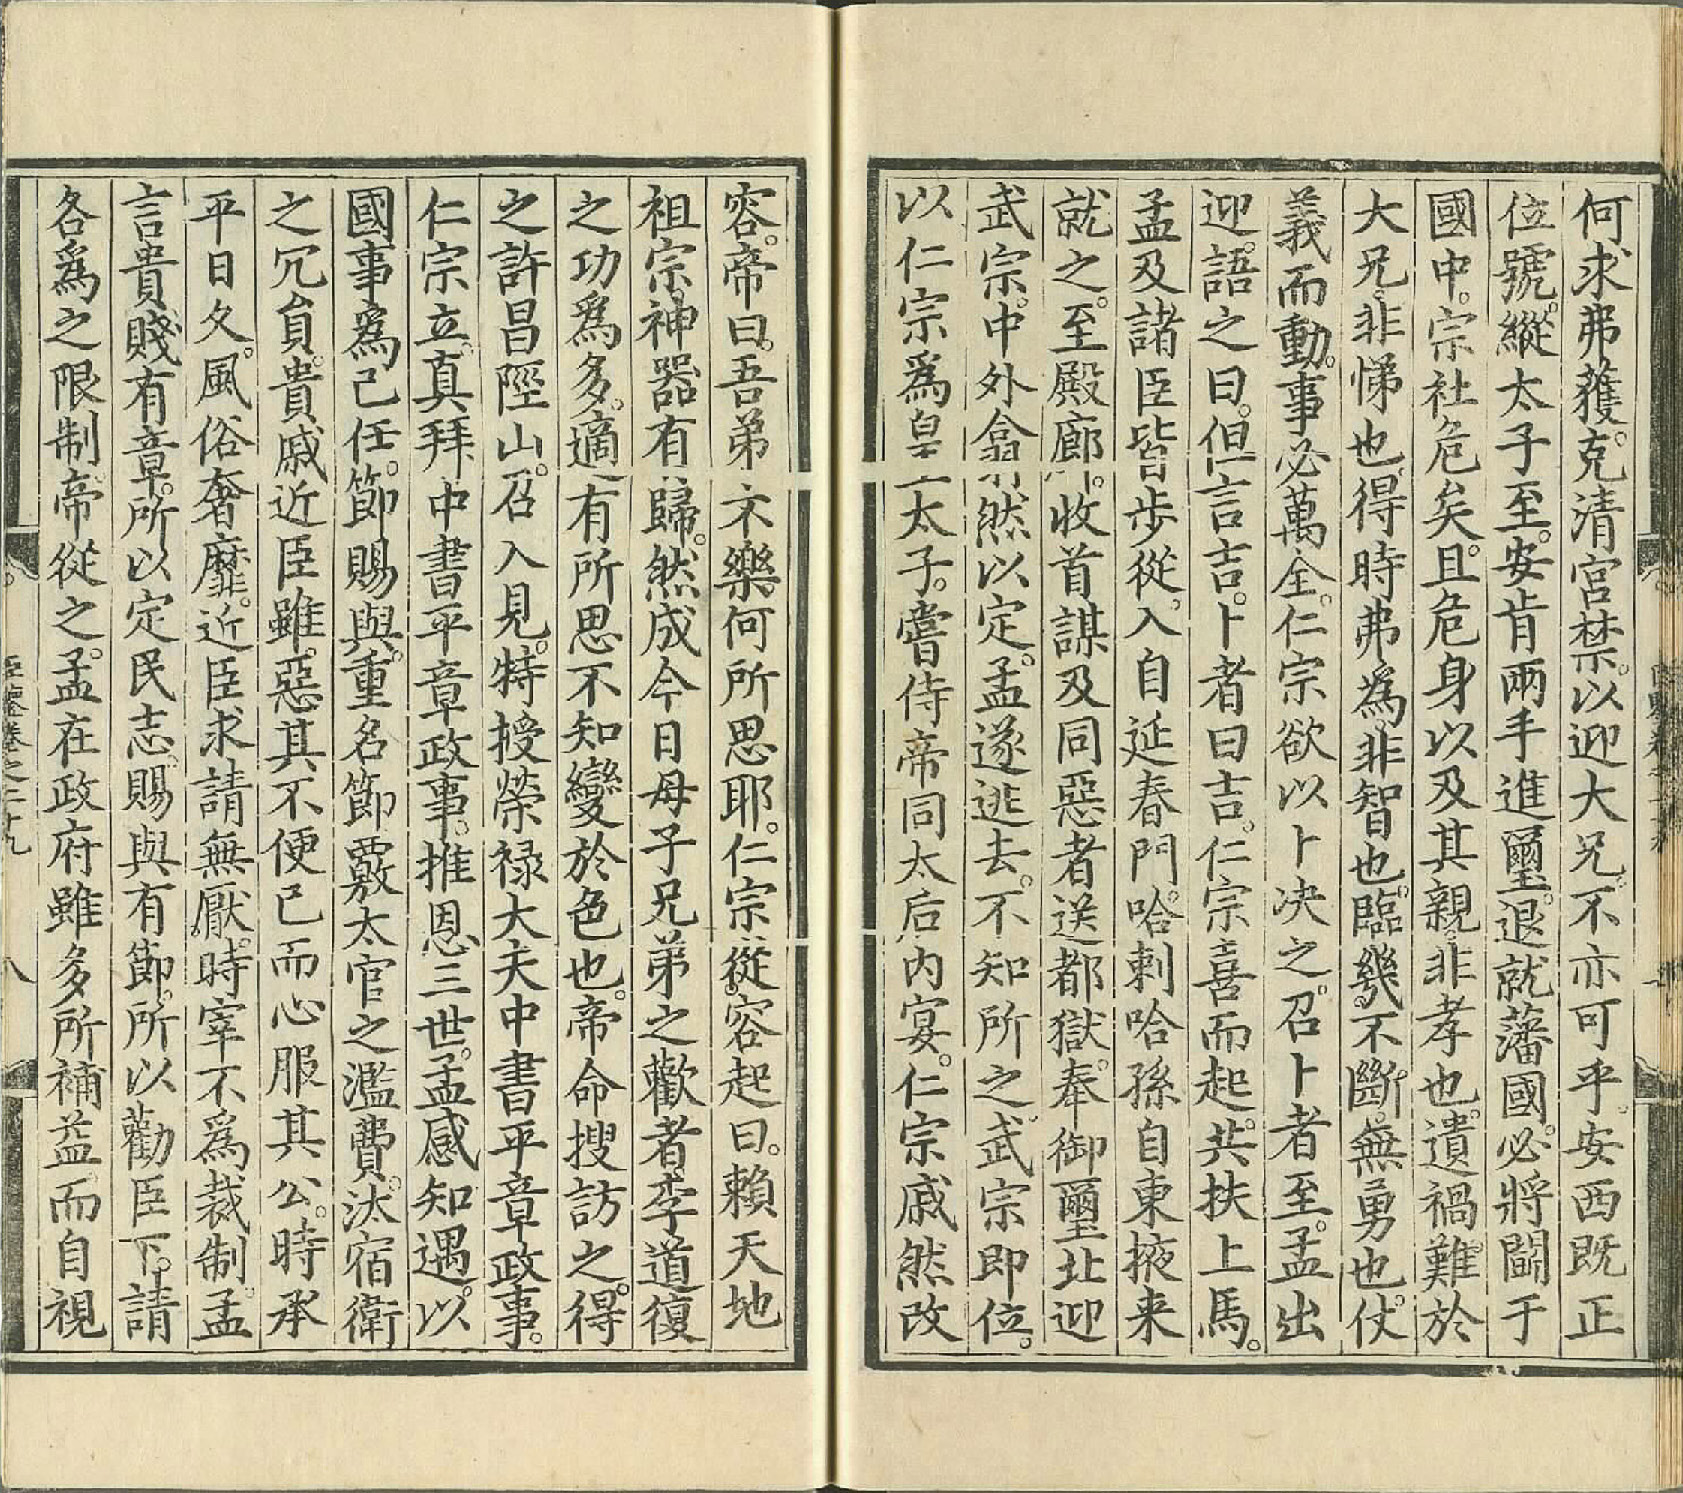 何求弗獲。克清宮禁。以迎大兄。不亦可乎。安西既正
位號。縱太子至。安肯兩手進璽。退就藩國。必將鬬于
國中。宗社危矣。且危身以及其親。非孝也。遺禍難於
大兄。非悌也。得時弗為。非智也。臨幾不斷。無勇也。仗
義而動。事必萬全。仁宗欲以卜决之。召卜者至。孟出
迎。語之曰。但言吉。卜者曰吉。仁宗喜而起。共扶上馬。
孟及諸臣皆步從。入自延春門。哈剌哈孫自東掖来
就之。至殿廊。收首謀及同惡者送都獄。奉御璽北迎
武宗。中外翕然以定。孟遂逃去。不知所之。武宗即位。
以仁宗為皇太子。嘗侍帝同太后内宴。仁宗戚然改
容。帝曰。吾弟不樂。何所思耶。仁宗從容起曰。賴天地
祖宗。神器有歸。然成今日母子兄弟之歡者。李道復
之功為多。適有所思。不知變於色也。帝命搜訪之。得
之許昌陘山。召入見。特授榮禄大夫中書平章政事。
仁宗立。真拜中書平章政事。推恩三世。孟感知遇。以
國事為己任。節賜與。重名節。覈太官之濫費。汰宿衛
之冗員。貴戚近臣雖惡其不便已。而心服其公。時承
平日久。風俗奢靡。近臣求請無厭。時宰不為裁制。孟
言貴賤有章。所以定民志。賜與有節。所以勸臣下。請
各為之限制。帝從之。孟在政府雖多所補益。而自視
臣鑒卷之二十九
八